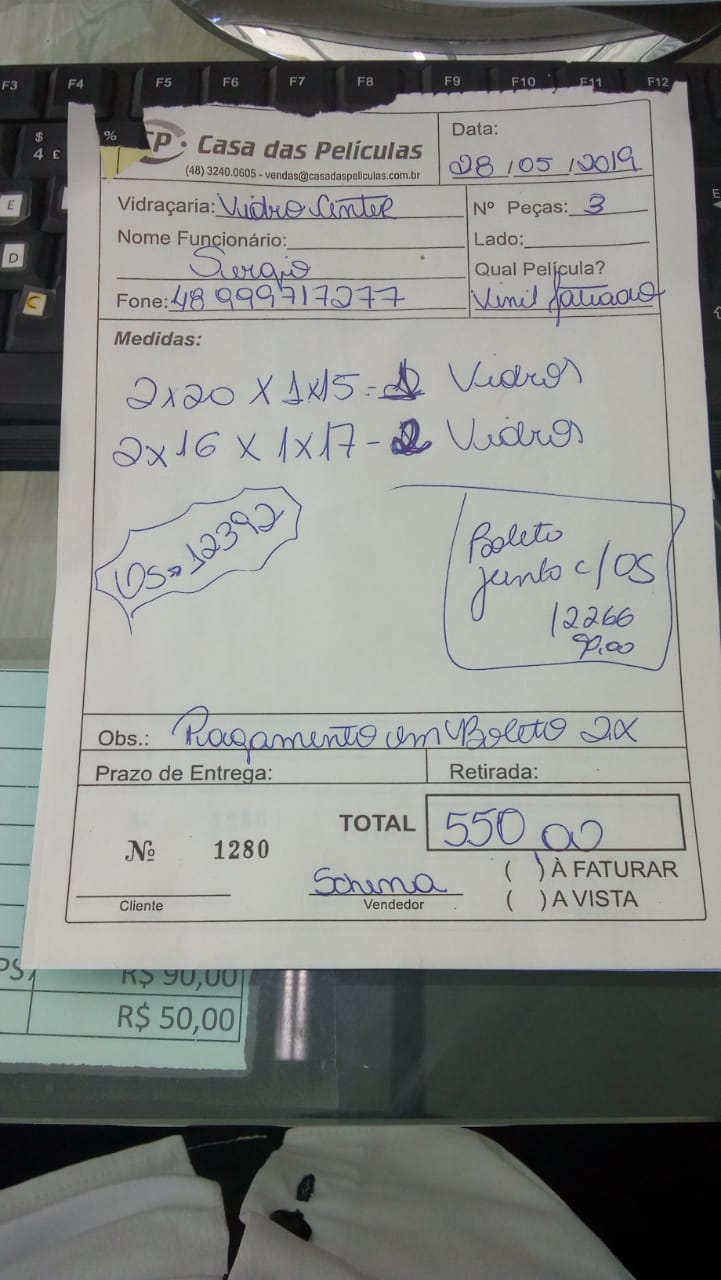 F3 F4 F5 F6 F7 F8 F9 F10 F11 F12
$ % 4 £
E
D
C
CP. Casa das Películas
(48) 3240.0605 - vendas@casadaspeliculas.com.br
Data:
28/05/2019
Vidraçaria: Vidro Center
Nome Funcionário:
Sergio
Fone: 48 999717277
Nº Peças: 3
Lado:
Qual Película?
Vinil Jatiado
Medidas:
2x20 X 1x15 - 1 Vidros
2x16 X 1x17 - 2 Vidros
OS 12392
Boleto
junto c/ OS
12266
90,00
Obs.: Pagamento em Boleto 2X
Prazo de Entrega:
Retirada:
Nº 1280
TOTAL 550,00
Cliente
Vendedor
( ) À FATURAR
( ) A VISTA
R$ 90,00
R$ 50,00